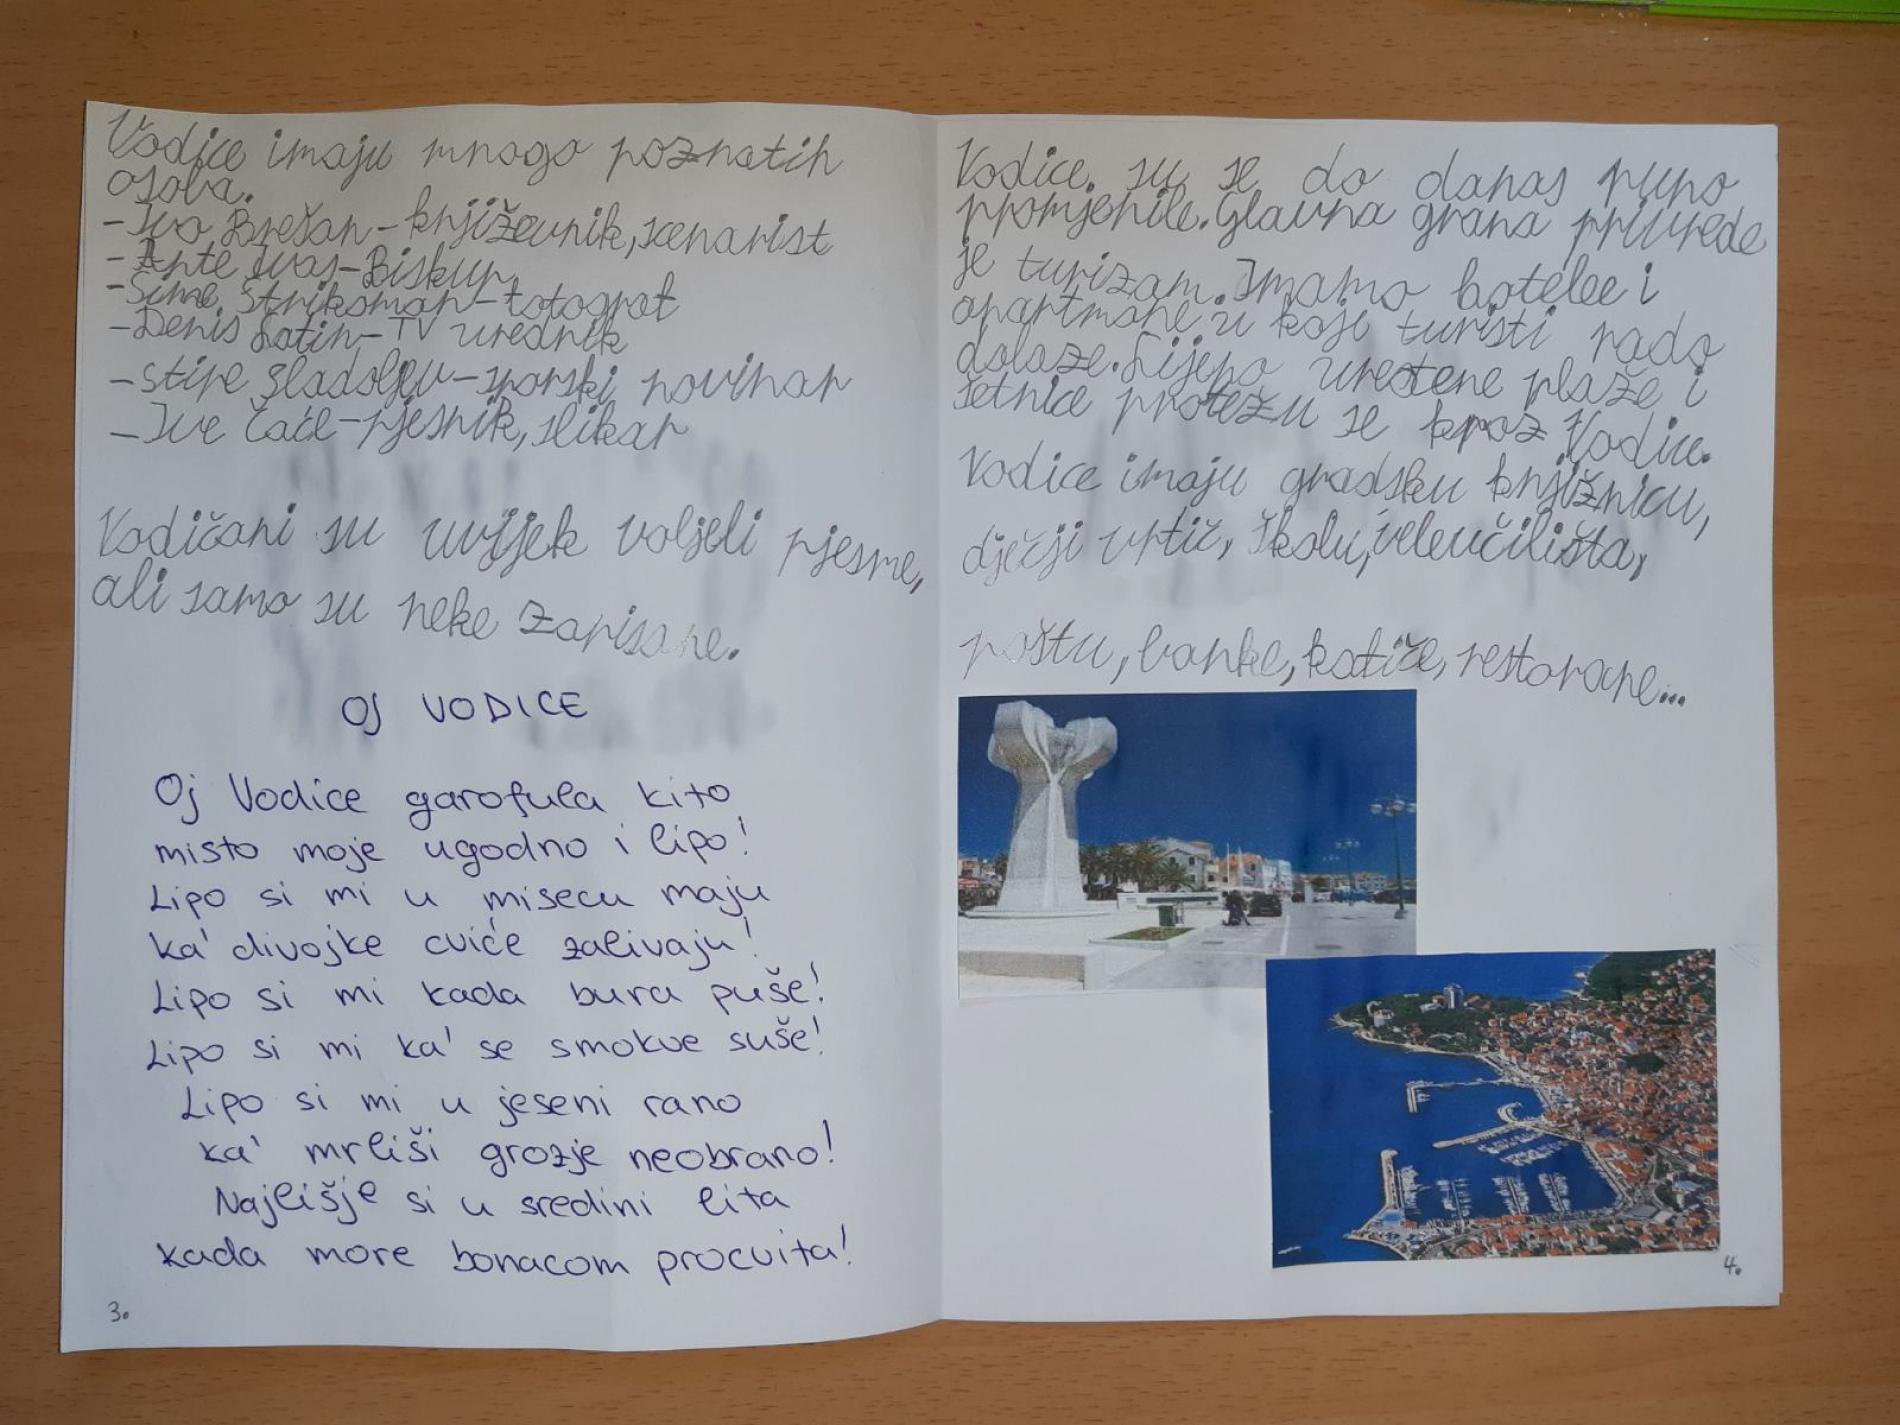 Vodice imaju mnogo poznatih
osoba.
-Ivo Brešan-književnik, scenarist
-Ante Ivas-Biskup
-Šime Strikoman-fotograf
-Denis Latin-TV urednik
-stipe gladoljev-sporski novinar
-Ive Čaće-pjesnik, slikar
Vodičani su uvijek voljeli pjesme,
ali samo su neke zapisane.
OJ VODICE
Oj Vodice garofula kito
misto moje ugodno i lipo!
Lipo si mi u misecu maju
ka' divojke cviće zalivaju!
Lipo si mi kada bura puše!
Lipo si mi ka' se smokve suše!
Lipo si mi u jeseni rano
ka' mriši grozje neobrano!
Najlišje si u sredini lita
kada more bonacom procvita!
3.
Vodice su se do danas puno
promjenile. Glavna grana privrede
je turizam. Imamo hotele i
apartmane u koje turisti rado
dolaze. Lijepo uređene plaže i
šetnice protežu se kroz Vodice.
Vodice imaju gradsku knjižnicu,
dječji vrtić, školu, veleučilišta,
poštu, banke, kafiće, restorane...
4.